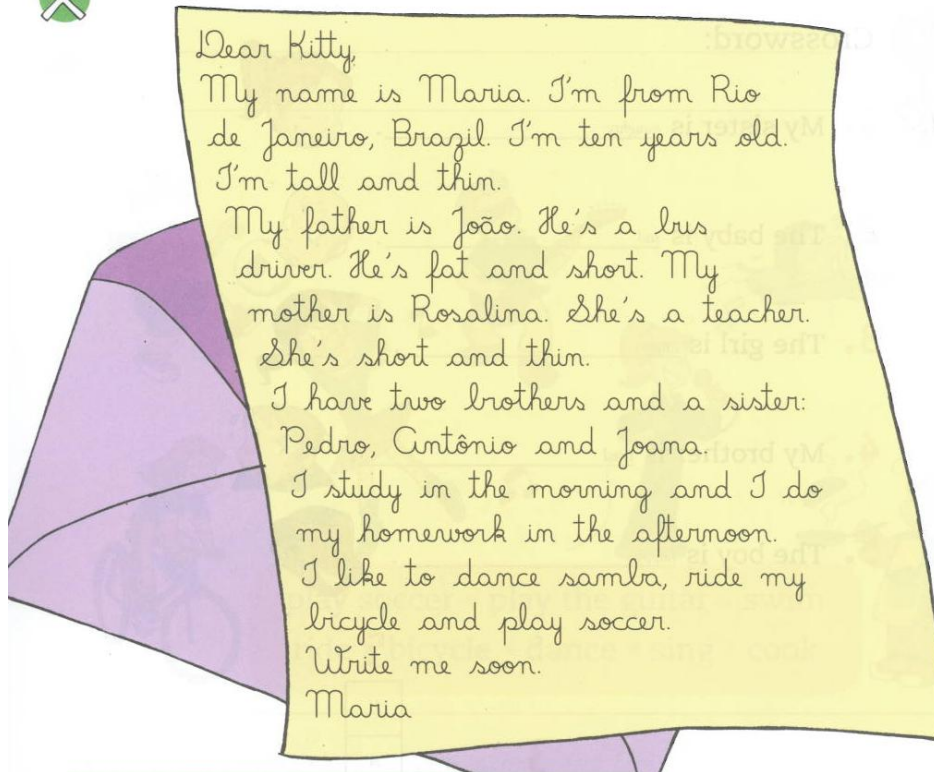 Dear Kitty,
My name is Maria. I'm from Rio
de Janeiro, Brazil. I'm ten years old.
I'm tall and thin.
My father is João. He's a bus
driver. He's fat and short. My
mother is Rosalina. She's a teacher.
She's short and thin.
I have two brothers and a sister:
Pedro, Antônio and Joana.
I study in the morning and I do
my homework in the afternoon.
I like to dance samba, ride my
bicycle and play soccer.
Write me soon.
Maria